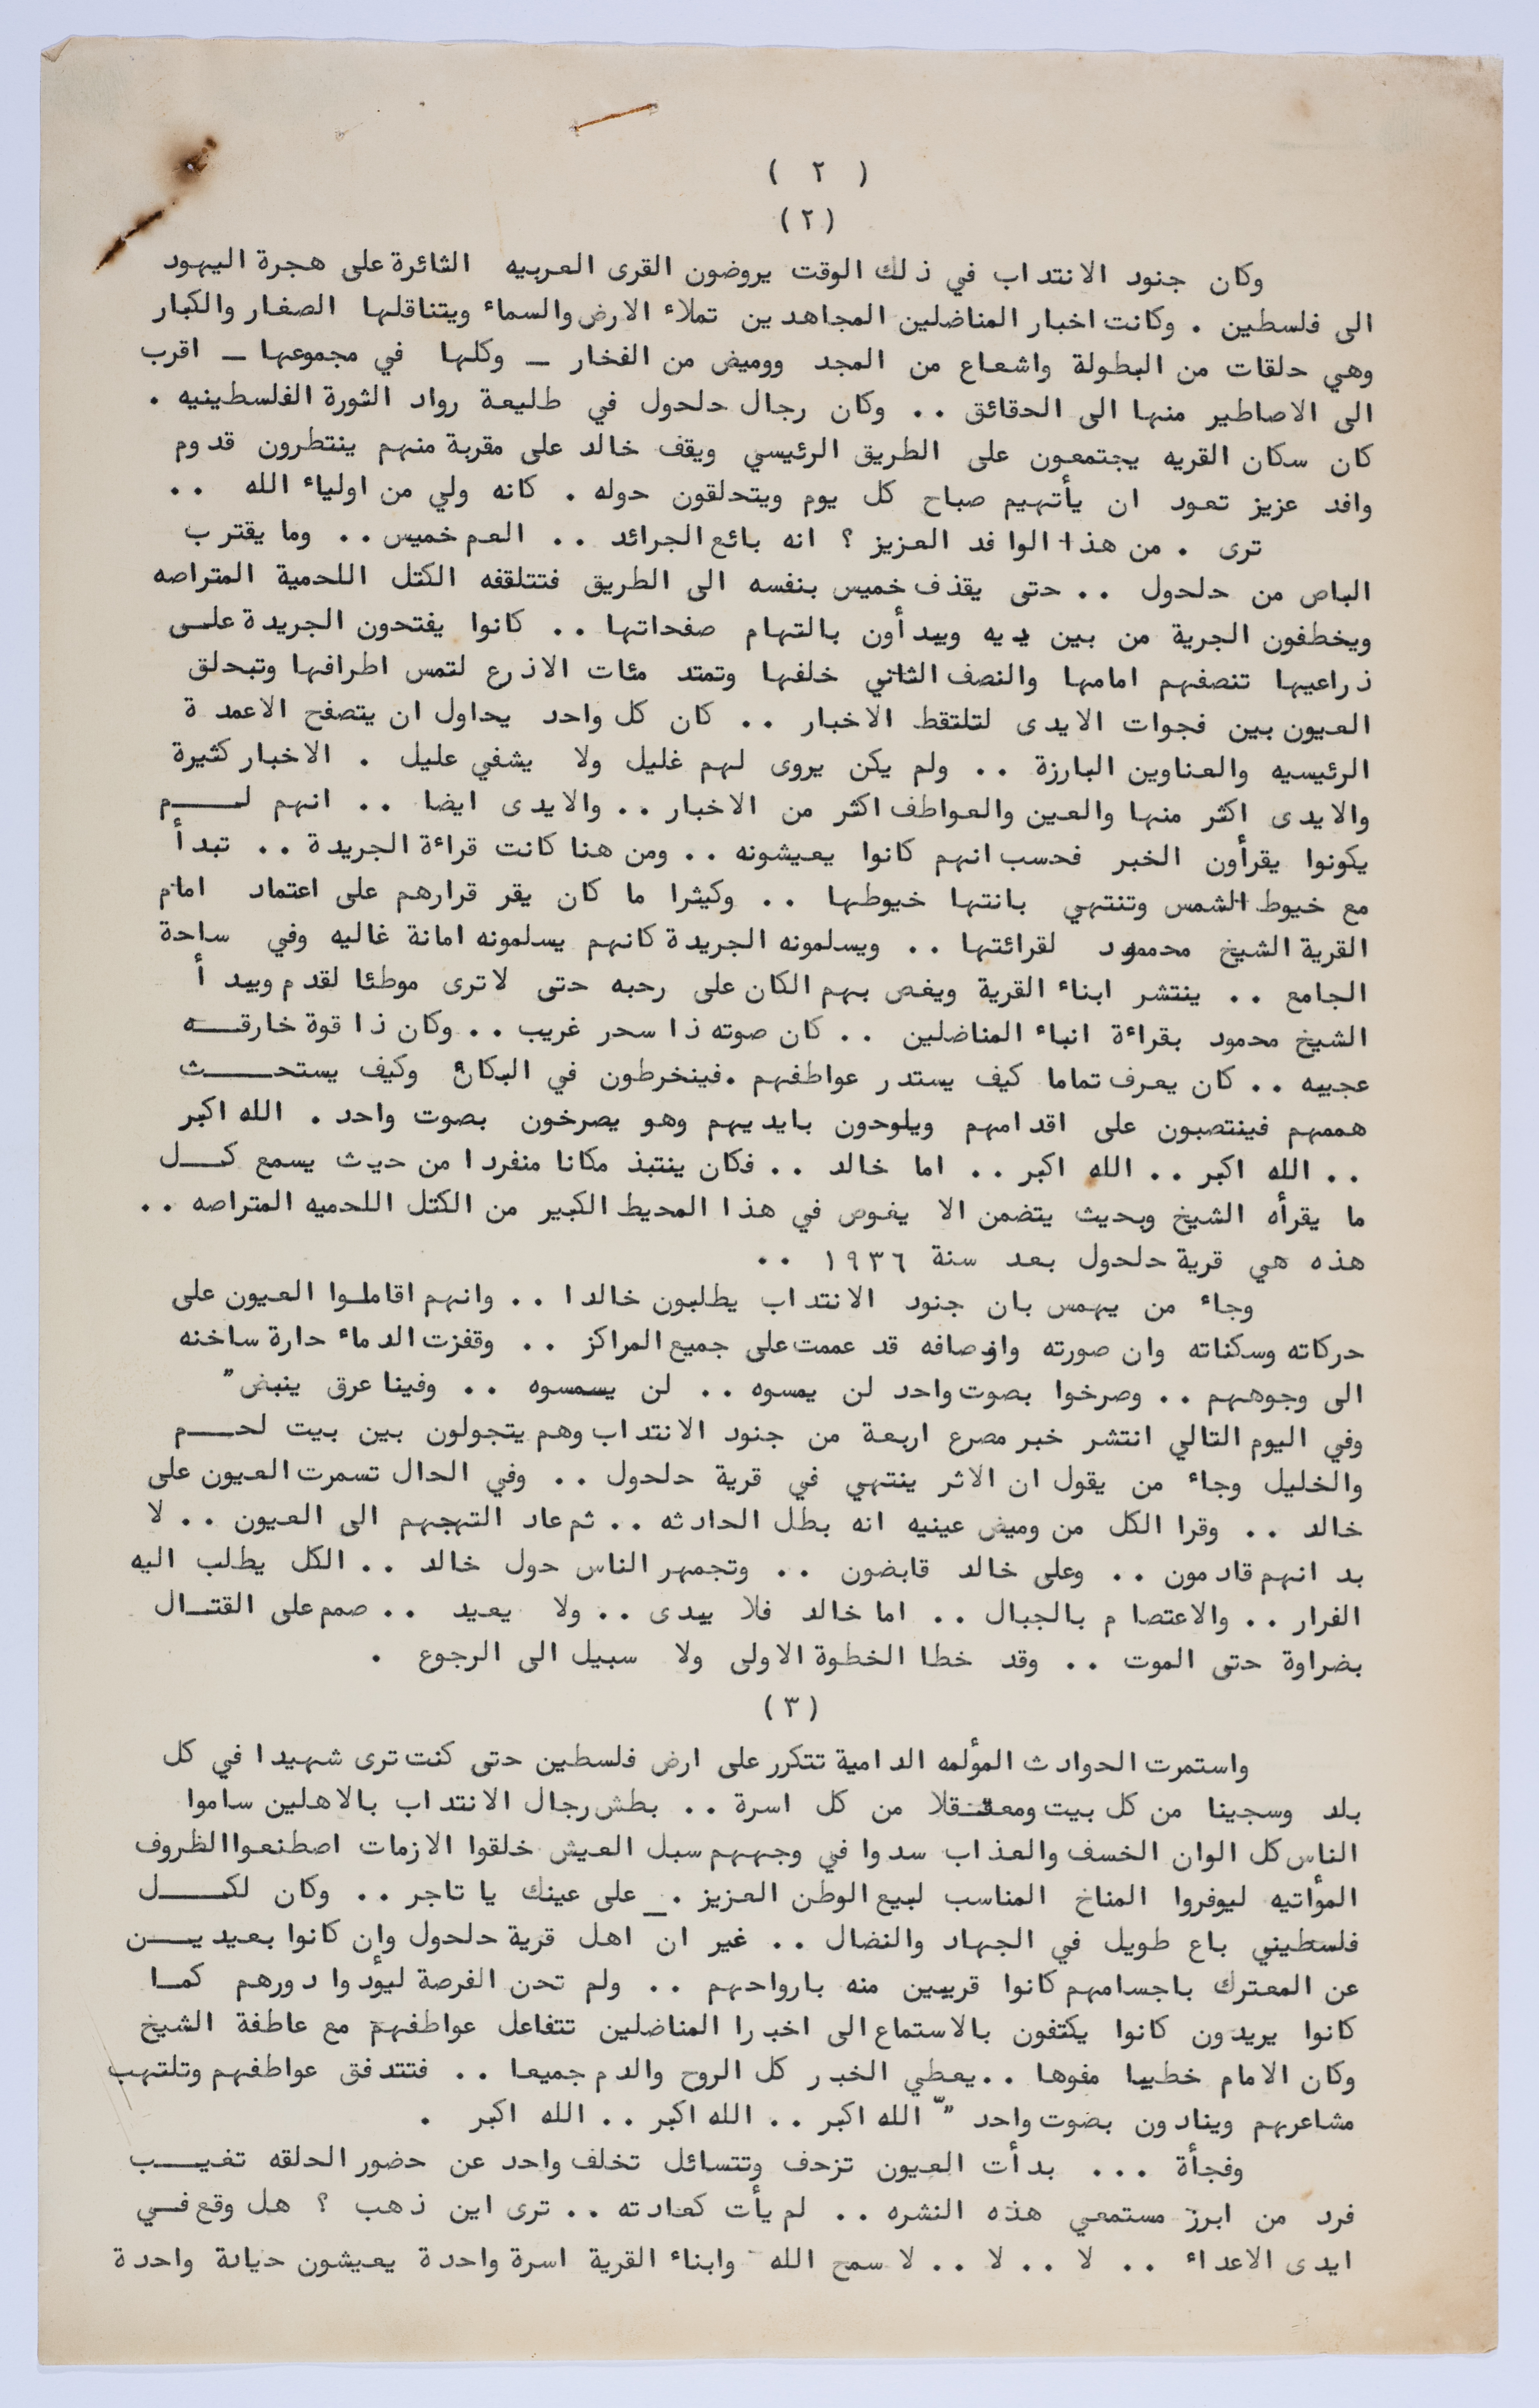 ( ٢ )
(٢)
وكان جنود الانتداب في ذلك الوقت يروضون القرى العربيه الثائرة على هجرة اليهود
الى فلسطين . وكانت اخبار المناضلين المجاهدين تملاء الارض والسماء ويتناقلها الصغار والكبار
وهي حلقات من البطولة واشعاع من المجد ووميض من الفخار ــ وكلها في مجموعها ــ اقرب
الى الاصاطير منها الى الحقائق .. وكان رجال حلحول في طليعة رواد الثورة الفلسطينيه .
كان سكان القريه يجتمعون على الطريق الرئيسي ويقف خالد على مقربة منهم ينتطرون قدوم
وافد عزيز تعود ان يأتهيم صباح كل يوم ويتحلقون حوله . كانه ولي من اولياء الله ..
ترى . من هذا الوافد العزيز ؟ انه بائع الجرائد .. العم خميس .. وما يقترب
الباص من حلحول .. حتى يقذف خميس بنفسه الى الطريق فتتلقفه الكتل اللحمية المتراصه
ويخطفون الجرية من بين يديه ويبدأون بالتهام صفحاتها .. كانوا يفتحون الجريدة علــى
ذراعيها تنصفهم امامها والنصف الثاني خلفها وتمتد مئات الاذرع لتمس اطرافها وتبحلق
العيون بين فجوات الايدى لتلتقط الاخبار .. كان كل واحد يحاول ان يتصفح الاعمدة
الرئيسيه والعناوين البارزة .. ولم يكن يروى لهم غليل ولا يشفي عليل . الاخبار كثيرة
والايدى اكثر منها والعين والعواطف اكثر من الاخبار .. والايدى ايضا .. انهم لــــم
يكونوا يقرأون الخبر فحسب انهم كانوا يعيشونه .. ومن هنا كانت قراءة الجريدة .. تبدأ
مع خيوط الشمس وتنتهي بانتها خيوطها .. وكيثرا ما كان يقر قرارهم على اعتماد امام
القرية الشيخ محممود لقرائتها .. ويسلمونه الجريدة كانهم يسلمونه امانة غاليه وفي ساحة
الجامع .. ينتشر ابناء القرية ويغص بهم الكان على رحبه حتى لا ترى موطئا لقدم ويبدأ
الشيخ محمود بقراءة انباء المناضلين .. كان صوته ذا سحر غريب .. وكان ذا قوة خارقــه
عجيبه .. كان يعرف تماما كيف يستدر عواطفهم . فينخرطون في البكاء وكيف يستحـــث
هممهم فينتصبون على اقدامهم ويلوحون بايديهم وهو يصرخون بصوت واحد . الله اكبر
.. الله اكبر .. الله اكبر .. اما خالد .. فكان ينتبذ مكانا منفردا من حيث يسمع كــل
ما يقرأه الشيخ وبحيث يتضمن الا يغوص في هذا المحيط الكبير من الكتل اللحميه المتراصه ..
هذه هي قرية حلحول بعد سنة ١٩٣٦ ..
وجاء من يهمس بان جنود الانتداب يطلبون خالدا .. وانهم اقاموا العيون على
حركاته وسكناته وان صورته واوصافه قد عممت على جميع المراكز .. وقفزت الدماء حارة ساخنه
الى وجوههم .. وصرخوا بصوت واحد لن يمسوه .. لن يسمسوه .. وفينا عرق ينبض "
وفي اليوم التالي انتشر خبر مصرع اربعة من جنود الانتداب وهم يتجولون بين بيت لحــم
والخليل وجاء من يقول ان الاثر ينتهي في قرية حلحول .. وفي الحال تسمرت العيون على
خالد .. وقرا الكل من وميض عينيه انه بطل الحادثه .. ثم عاد التهجهم الى العيون .. لا
بد انهم قادمون .. وعلى خالد قابضون .. وتجمهر الناس حول خالد .. الكل يطلب اليه
الفرار .. والاعتصام بالجبال .. اما خالد فلا يبدى .. ولا يعيد .. صمم على القتــال
بضراوة حتى الموت .. وقد خطا الخطوة الاولى ولا سبيل الى الرجوع .
(٣)
واستمرت الحوادث المؤلمه الدامية تتكرر على ارض فلسطين حتى كنت ترى شهيدا في كل
بلد وسجينا من كل بيت ومعتقلا من كل اسرة .. بطش رجال الانتداب بالاهلين ساموا
الناس كل الوان الخسف والعذاب سدوا في وجههم سبل العيش خلقوا الازمات اصطنعوا الظروف
المؤاتيه ليوفروا المناخ المناسب لبيع الوطن العزيز . ــ على عينك يا تاجر .. وكان لكــــل
فلسطيني باع طويل في الجهاد والنضال .. غير ان اهل قرية حلحول وان كانوا بعيديــن
عن المعترك باجسامهم كانوا قريبين منه بارواحهم .. ولم تحن الفرصة ليؤدوا دورهم كمــا
كانوا يريدون كانوا يكتفون بالاستماع الى اخبرا المناضلين تتفاعل عواطفهم مع عاطفة الشيخ
وكان الامام خطيبا مفوها .. يعطي الخبر كل الروح والدم جميعا .. فتتدفق عواطفهم وتلتهب
مشاعرهم وينادون بضوت واحد " الله اكبر .. الله اكبر .. الله اكبر .
وفجأة ... بدأت العيون تزحف وتتسائل تخلف واحد عن حضور الحلقه تغيــب
فرد من ابرز مستمعي هذه النشره .. لم يأت كعادته .. ترى اين ذهب ؟ هل وقع فــي
ايدى الاعداء .. لا .. لا .. لا سمح الله وابناء القرية اسرة واحدة يعيشون حياة واحدة